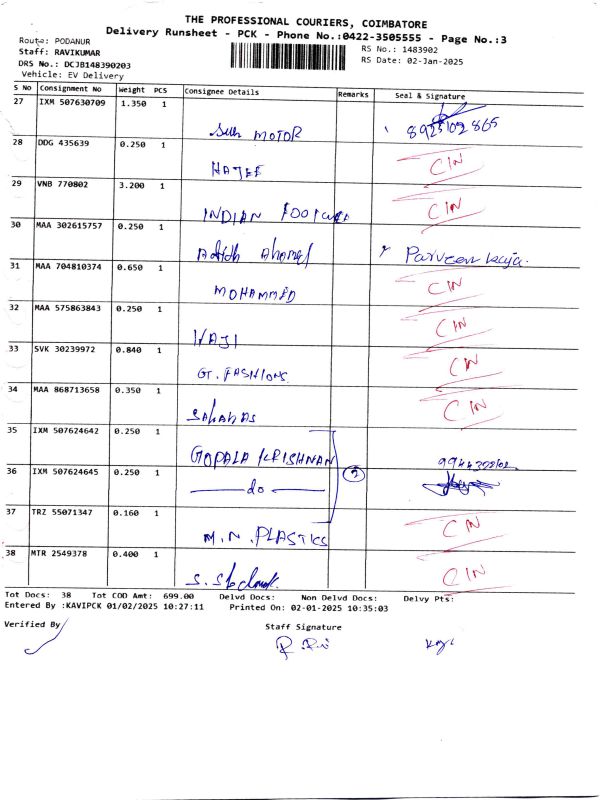 THE PROFESSIONAL COURIERS, COIMBATORE
Delivery Runsheet - PCK - Phone No.:0422-3505555 - Page No.:3
Route: PODANUR
Staff: RAVIKUMAR
DRS No.: DCJB148390203
Vehicle: EV Delivery
RS No.: 1483902
RS Date: 02-Jan-2025
S No Consignment No Weight PCS Consignee Details Remarks Seal & Signature
27 IXM 507630709 1.350 1
MOTOR
28 DDG 435639 0.250 1
CIN
29 VNB 770802 3.200 1
INDIAN CIN
30 MAA 302615757 0.250 1
Parveen
31 MAA 704810374 0.650 1
MOHAMMED CIN
32 MAA 575863843 0.250 1
HAJI CIN
33 SVK 30239972 0.840 1
GT. FASHIONS CIN
34 MAA 868713658 0.350 1
CIN
35 IXM 507624642 0.250 1
GOPALA KRISHNAN
36 IXM 507624645 0.250 1
do 2
37 TRZ 55071347 0.160 1
M.N. PLASTICS CIN
38 MTR 2549378 0.400 1
CIN
Tot Docs: 38 Tot COD Amt: 699.00 Delvd Docs: Non Delvd Docs: Delvy Pts:
Entered By :KAVIPCK 01/02/2025 10:27:11 Printed On: 02-01-2025 10:35:03
Verified By Staff Signature